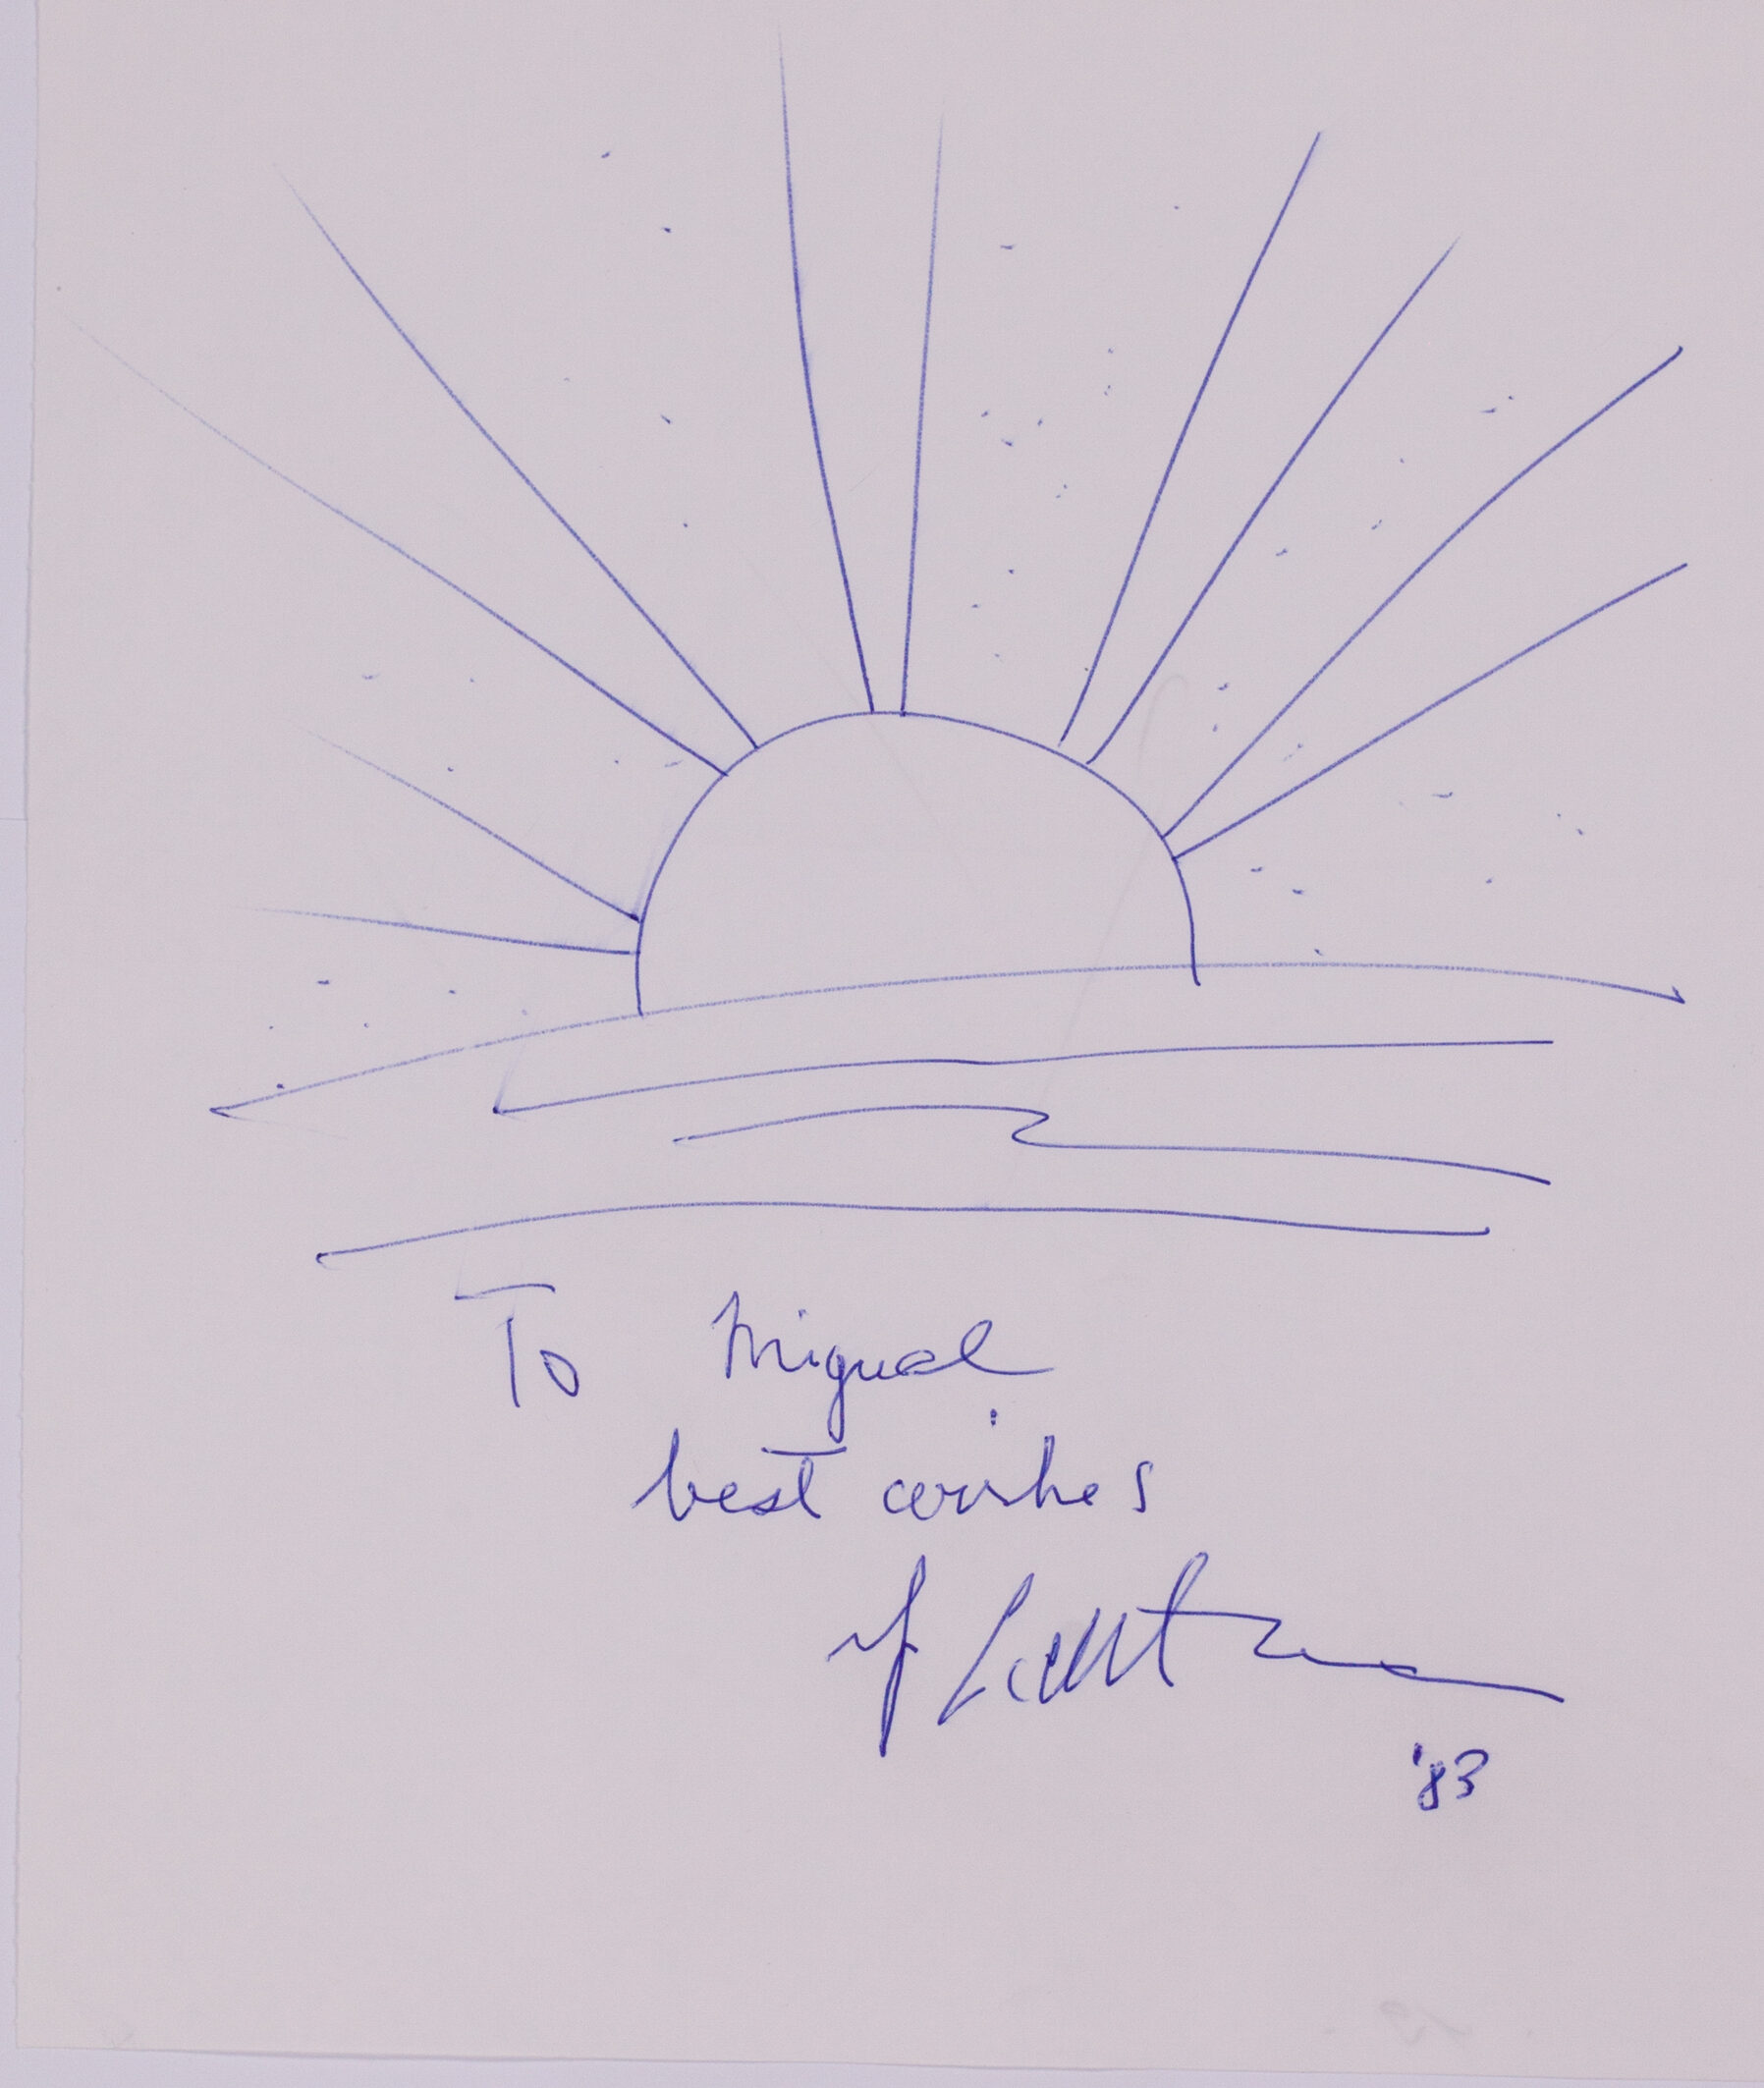 To Migual
best wishes
'83